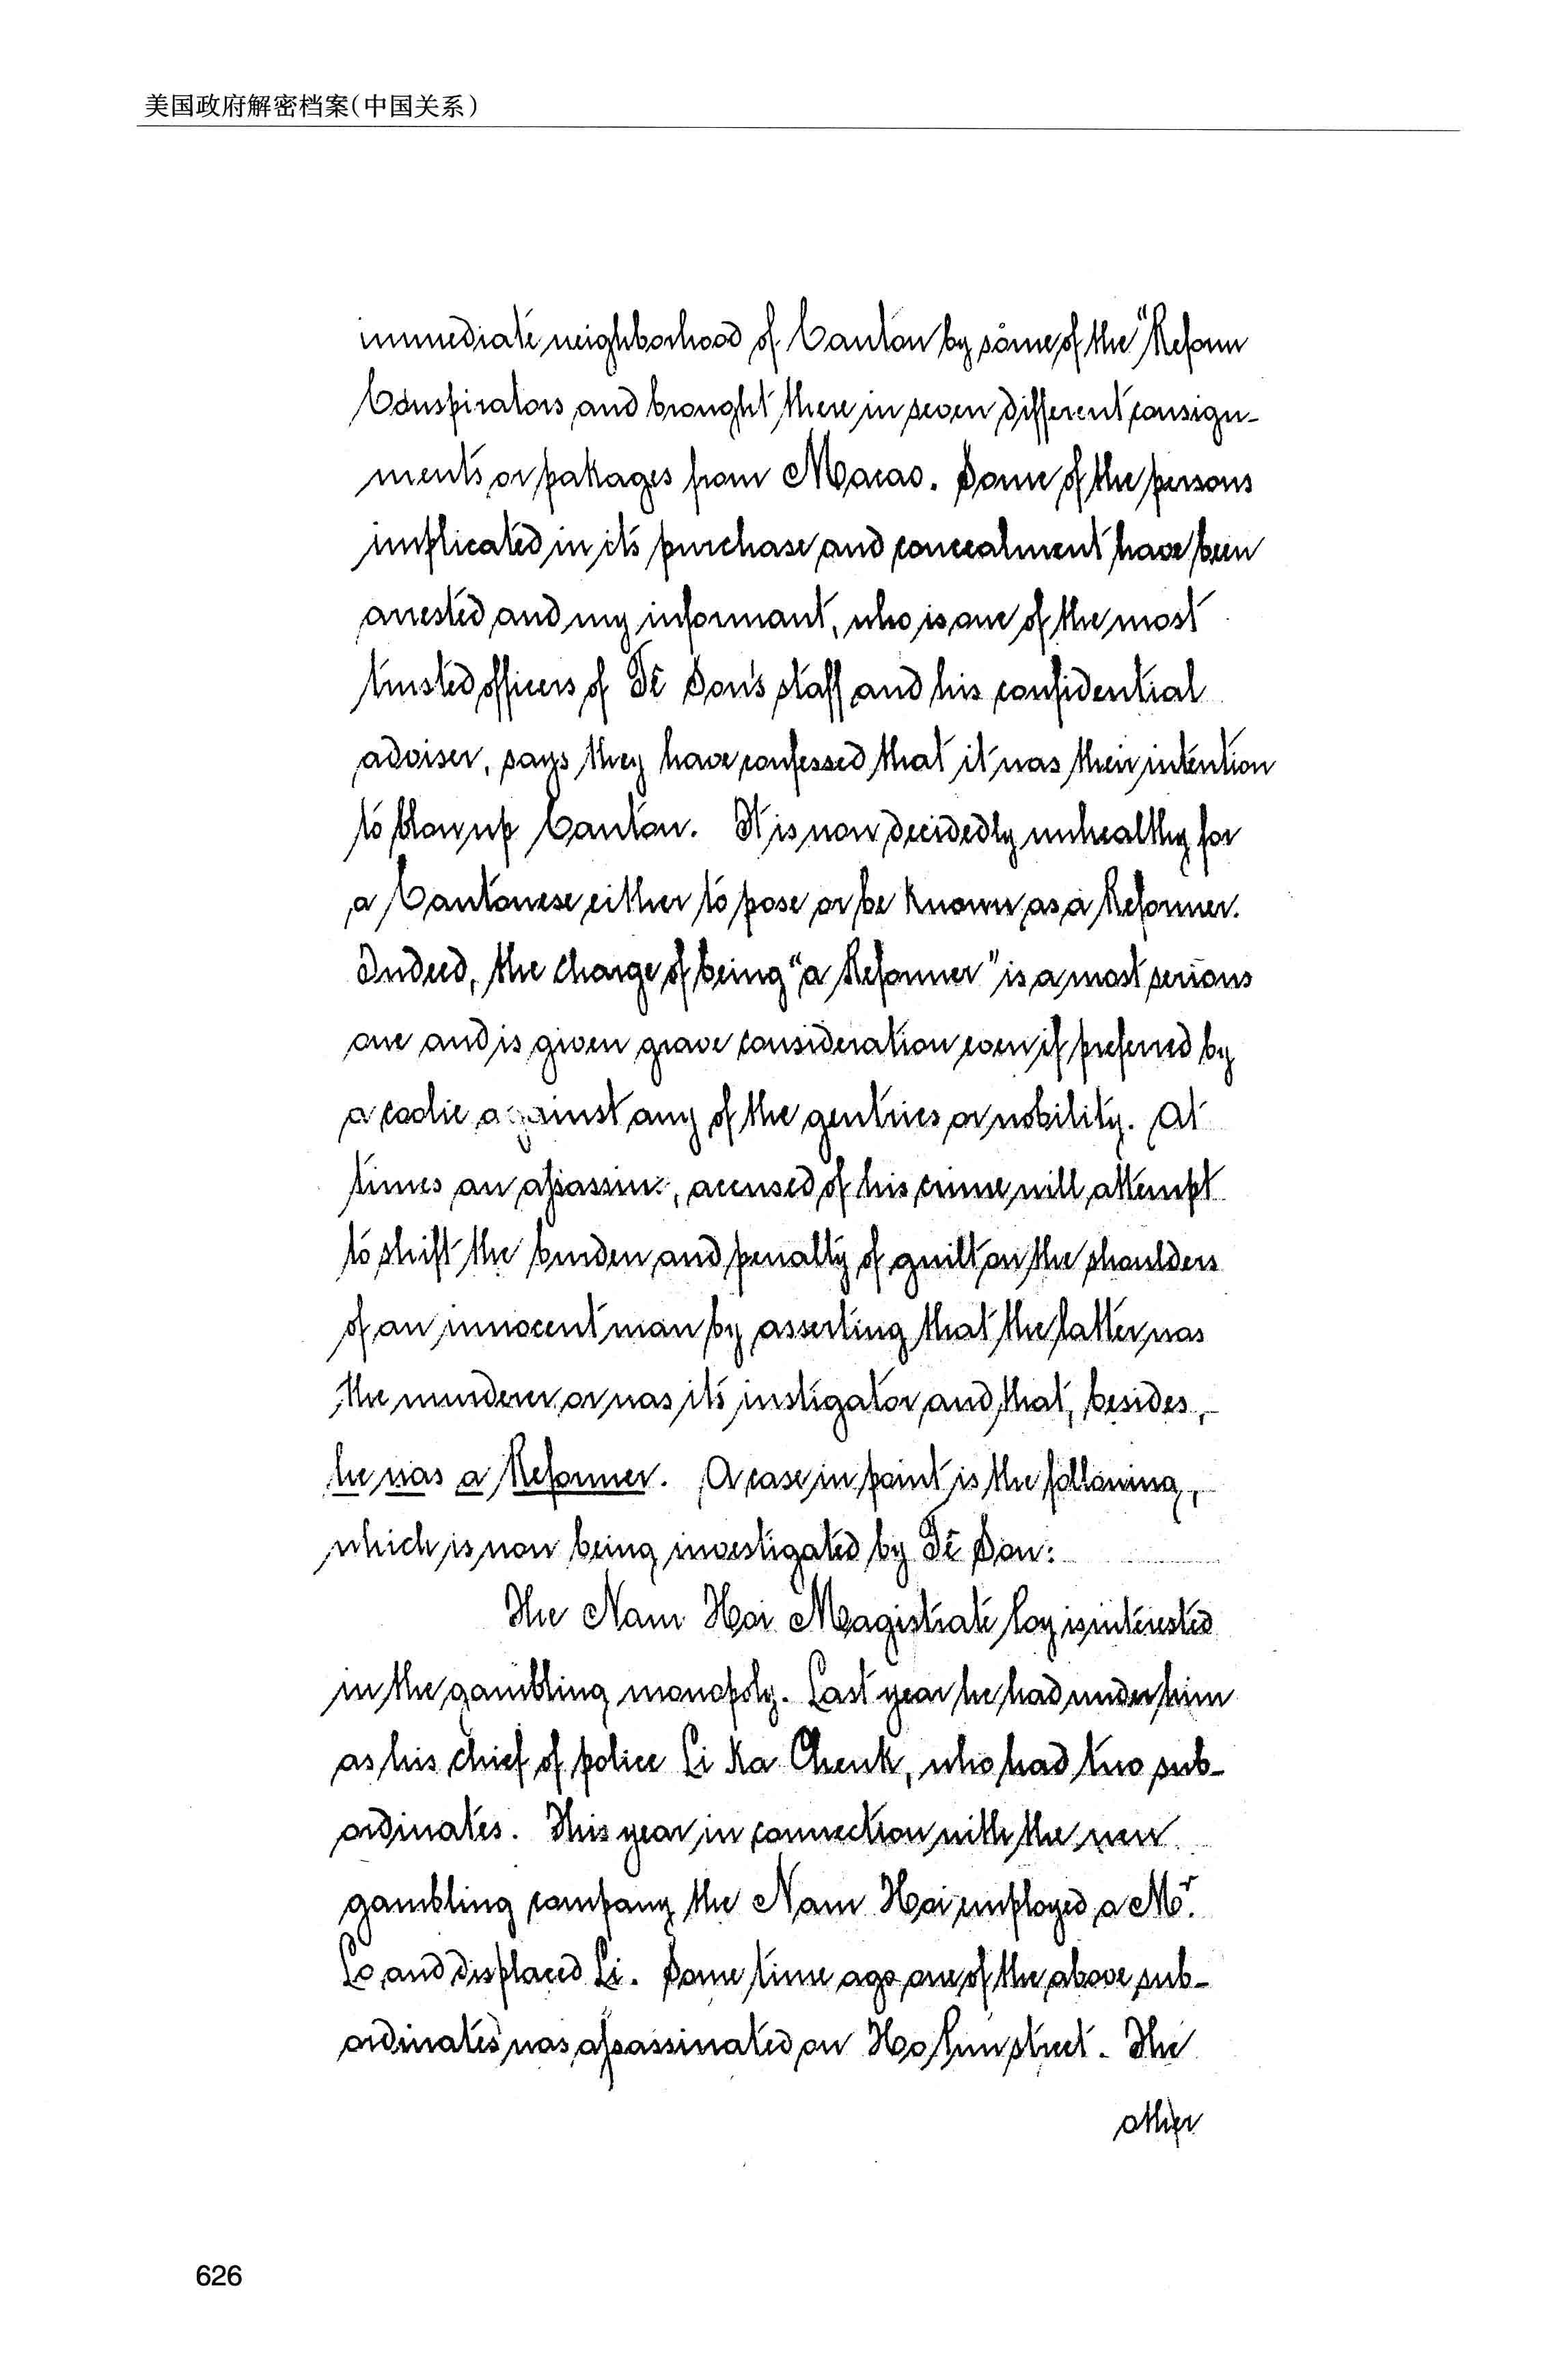 美国政府解密档案(中国关系)
immediate neighborhood of Canton by some of the "Reform
Conspirators and brought there in seven different consign-
ments or pakages from Macao. Some of the persons
implicated in its purchase and concealment have been
arrested and my informant, who is one of the most
trusted officers of Tê Son's staff and his confidential
adviser, says they have confessed that it was their intention
to blow up Canton. It is now decidedly unhealthy for
a Cantonese either to pose or be known as a Reformer.
Indeed, the charge of being "a Reformer" is a most serious
one and is given grave consideration even if preferred by
a coolie against any of the gentries or nobility. At
times an assassin, accused of his crime will attempt
to shift the burden and penalty of guilt on the shoulders
of an innocent man by asserting that the latter was
the murderer or was its instigator and that, besides,
he was a Reformer. A case in point is the following,
which is now being investigated by Tê Son:
The Nam Hoi Magistrate Loy is interested
in the gambling monopoly. Last year he had under him
as his chief of police Li Ka Cheuk, who had two sub-
ordinates. This year in connection with the new
gambling company the Nam Hoi employed a Mr.
Lo and displaced Li. Some time ago one of the above sub-
ordinates was assassinated on Ho Lun street. The
other
626